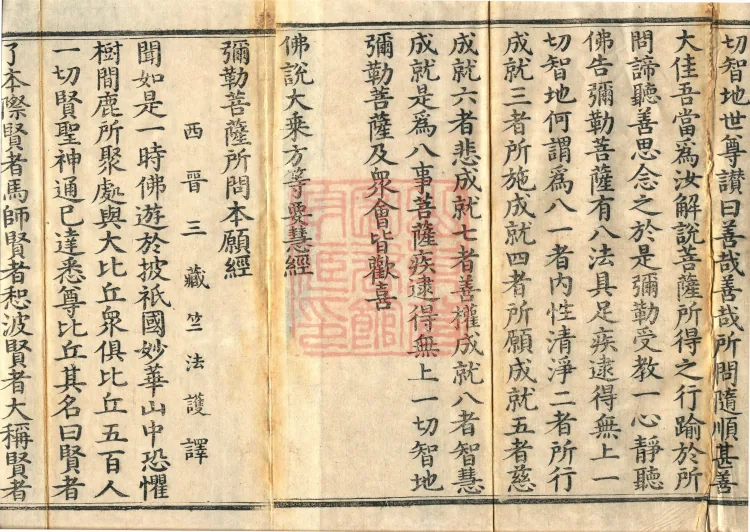 切智地世尊讃曰善哉善哉所問隨順甚善
大佳吾當爲汝解說菩薩所得之行踰於所
問諦聽善思念之於是彌勒受教一心靜聽
佛告彌勒菩薩有八法具足疾逮得無上一
切智地何謂爲八一者內性清淨二者所行
成就三者所施成就四者所願成就五者慈
成就六者悲成就七者善權成就八者智慧
成就是爲八事菩薩疾逮得無上一切智地
彌勒菩薩及衆會皆歡喜
佛說大乘方等要慧經
彌勒菩薩所問本願經
西晉三藏竺法護譯
聞如是一時佛遊於披祇國妙華山中恐懼
樹間鹿所聚處與大比丘衆俱比丘五百人
一切賢聖神通已達悉尊比丘其名曰賢者
了本際賢者馬師賢者恕波賢者大稱賢者